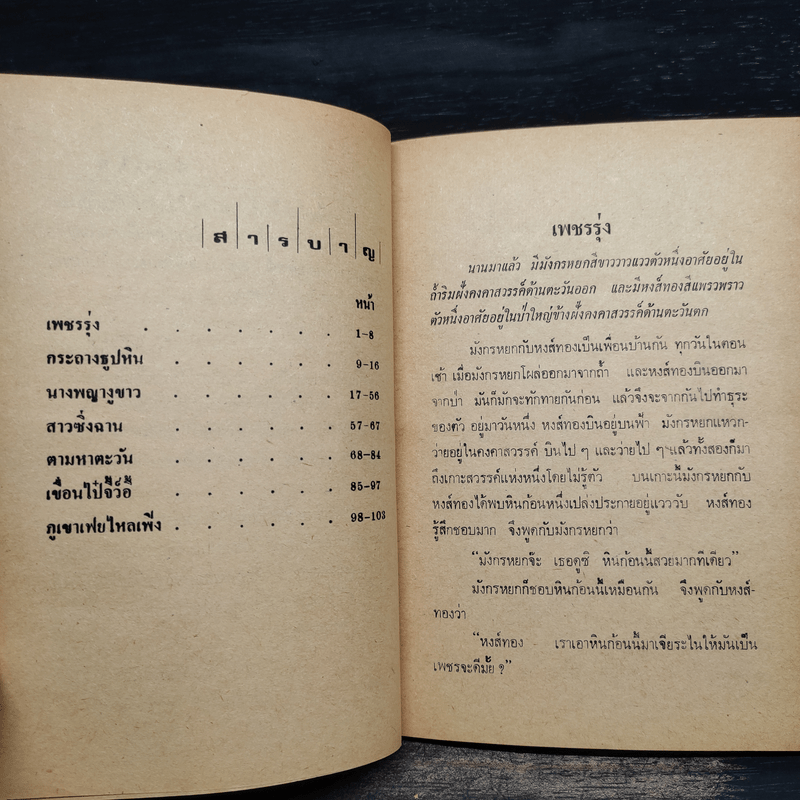 สารบาญ
หน้า
เพชรรุ่ง . . . . . . 1-8
กระถางธูปหิน . . . . . 9-16
นางพญางูขาว . . . . . 17-56
สาวซึ่งฉาน . . . . . 57-67
ตามหาตะวัน . . . . . 68-84
เขื่อนไป๋จี้ว์อี้ . . . . . 85-97
ภูเขาเฟยไหลเฟิง . . . . . 98-103
เพชรรุ่ง
นานมาแล้ว มีมังกรหยกสีขาววาวแววตัวหนึ่งอาศัยอยู่ใน
ถ้ำริมฝั่งคงคาสวรรค์ด้านตะวันออก และมีหงส์ทองสีแพรวพราว
ตัวหนึ่งอาศัยอยู่ในป่าใหญ่ข้างฝั่งคงคาสวรรค์ด้านตะวันตก
มังกรหยกกับหงส์ทองเป็นเพื่อนบ้านกัน ทุกวันในตอน
เช้า เมื่อมังกรหยกโผล่ออกมาจากถ้ำ และหงส์ทองบินออกมา
จากป่า มันก็มักจะทักทายกันก่อน แล้วจึงจะจากกันไปทำธุระ
ของตัว อยู่มาวันหนึ่ง หงส์ทองบินอยู่บนฟ้า มังกรหยกแหวก-
ว่ายอยู่ในคงคาสวรรค์ บินไป ๆ และว่ายไป ๆ แล้วทั้งสองก็มา
ถึงเกาะสวรรค์แห่งหนึ่งโดยไม่รู้ตัว บนเกาะนี้มังกรหยกกับ
หงส์ทองได้พบหินก้อนหนึ่งเปล่งประกายอยู่แวววับ หงส์ทอง
รู้สึกชอบมาก จึงพูดกับมังกรหยกว่า
“มังกรหยกจ๊ะ เธอดูซิ หินก้อนนี้สวยมากทีเดียว”
มังกรหยกก็ชอบหินก้อนนี้เหมือนกัน จึงพูดกับหงส์-
ทองว่า
“หงส์ทอง เราเอาหินก้อนนี้มาเจียระไนให้มันเป็น
เพชรจะดีมั้ย ?”